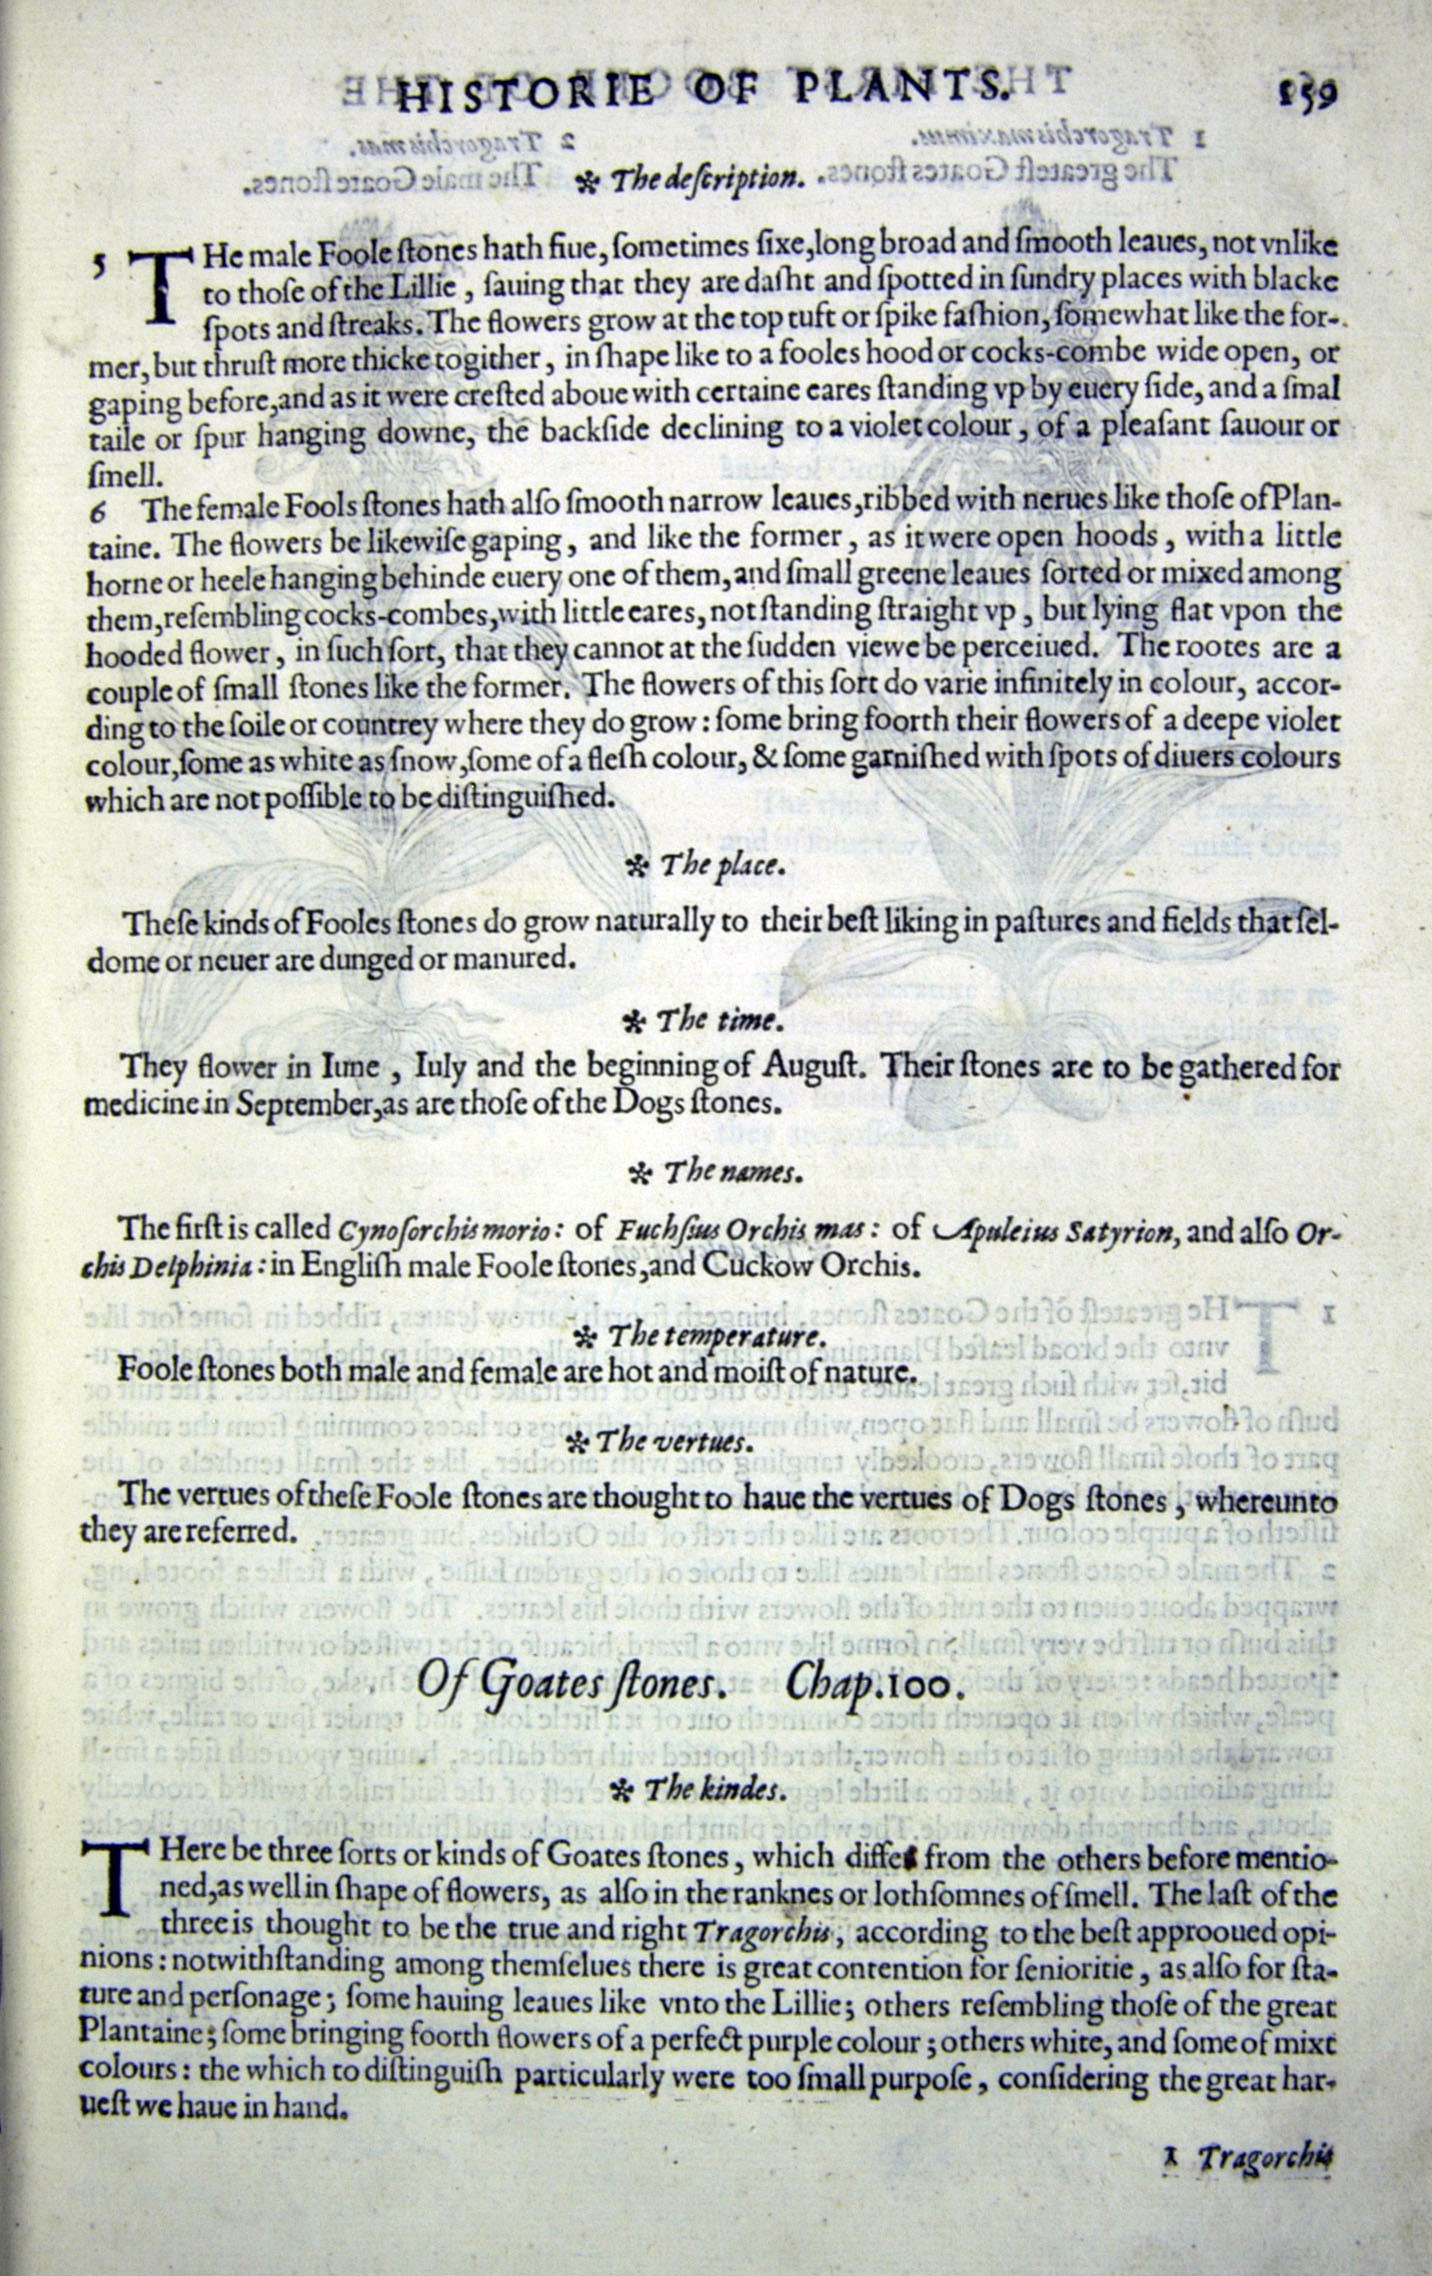 HISTORIE OF PLANTS. 159
✲ The deſcription.
5 THe male Foole ſtones hath fiue, ſometimes ſixe, long broad and ſmooth leaues, not vnlike
to thoſe of the Lillie, ſauing that they are daſht and ſpotted in ſundry places with blacke
ſpots and ſtreaks. The flowers grow at the top tuft or ſpike faſhion, ſomewhat like the for-
mer, but thruſt more thicke togither, in ſhape like to a fooles hood or cocks-combe wide open, or
gaping before, and as it were creſted aboue with certaine eares ſtanding vp by euery ſide, and a ſmal
taile or ſpur hanging downe, the backſide declining to a violet colour, of a pleaſant ſauour or
ſmell.
6 The female Fools ſtones hath alſo ſmooth narrow leaues, ribbed with nerues like thoſe of Plan-
taine. The flowers be likewiſe gaping, and like the former, as it were open hoods, with a little
horne or heele hanging behinde euery one of them, and ſmall greene leaues ſorted or mixed among
them, reſembling cocks-combes, with little eares, not ſtanding ſtraight vp, but lying flat vpon the
hooded flower, in ſuch ſort, that they cannot at the ſudden viewe be perceiued. The rootes are a
couple of ſmall ſtones like the former. The flowers of this ſort do varie infinitely in colour, accor-
ding to the ſoile or countrey where they do grow: ſome bring foorth their flowers of a deepe violet
colour, ſome as white as ſnow, ſome of a fleſh colour, & ſome garniſhed with ſpots of diuers colours
which are not poſſible to be diſtinguiſhed.
✲ The place.
Theſe kinds of Fooles ſtones do grow naturally to their beſt liking in paſtures and fields that ſel-
dome or neuer are dunged or manured.
✲ The time.
They flower in Iune, Iuly and the beginning of Auguſt. Their ſtones are to be gathered for
medicine in September, as are thoſe of the Dogs ſtones.
✲ The names.
The firſt is called Cynoſorchis morio: of Fuchſius Orchis mas: of Apuleius Satyrion, and alſo Or-
chis Delphinia: in Engliſh male Foole ſtones, and Cuckow Orchis.
✲ The temperature.
Foole ſtones both male and female are hot and moiſt of nature.
✲ The vertues.
The vertues of theſe Foole ſtones are thought to haue the vertues of Dogs ſtones, whereunto
they are referred.
Of Goates ſtones. Chap. 100.
✲ The kindes.
THere be three ſorts or kinds of Goates ſtones, which differ from the others before mentio-
ned, as well in ſhape of flowers, as alſo in the ranknes or lothſomnes of ſmell. The laſt of the
three is thought to be the true and right Tragorchis, according to the beſt approoued opi-
nions: notwithſtanding among themſelues there is great contention for ſenioritie, as alſo for ſta-
ture and perſonage; ſome hauing leaues like vnto the Lillie; others reſembling thoſe of the great
Plantaine; ſome bringing foorth flowers of a perfect purple colour; others white, and ſome of mixt
colours: the which to diſtinguiſh particularly were too ſmall purpoſe, conſidering the great har-
ueſt we haue in hand.
1 Tragorchis